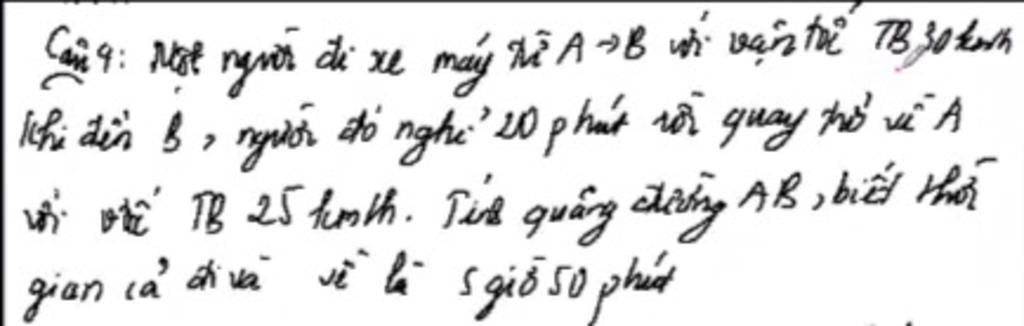 Câu 9: Một người đi xe máy từ A → B với vận tốc TB 30 km/h
Khi đến B, người đó nghỉ 20 phút rồi quay trở về A
với vtốc TB 25 km/h. Tính quãng đường AB, biết thời
gian cả đi và về là 5 giờ 50 phút